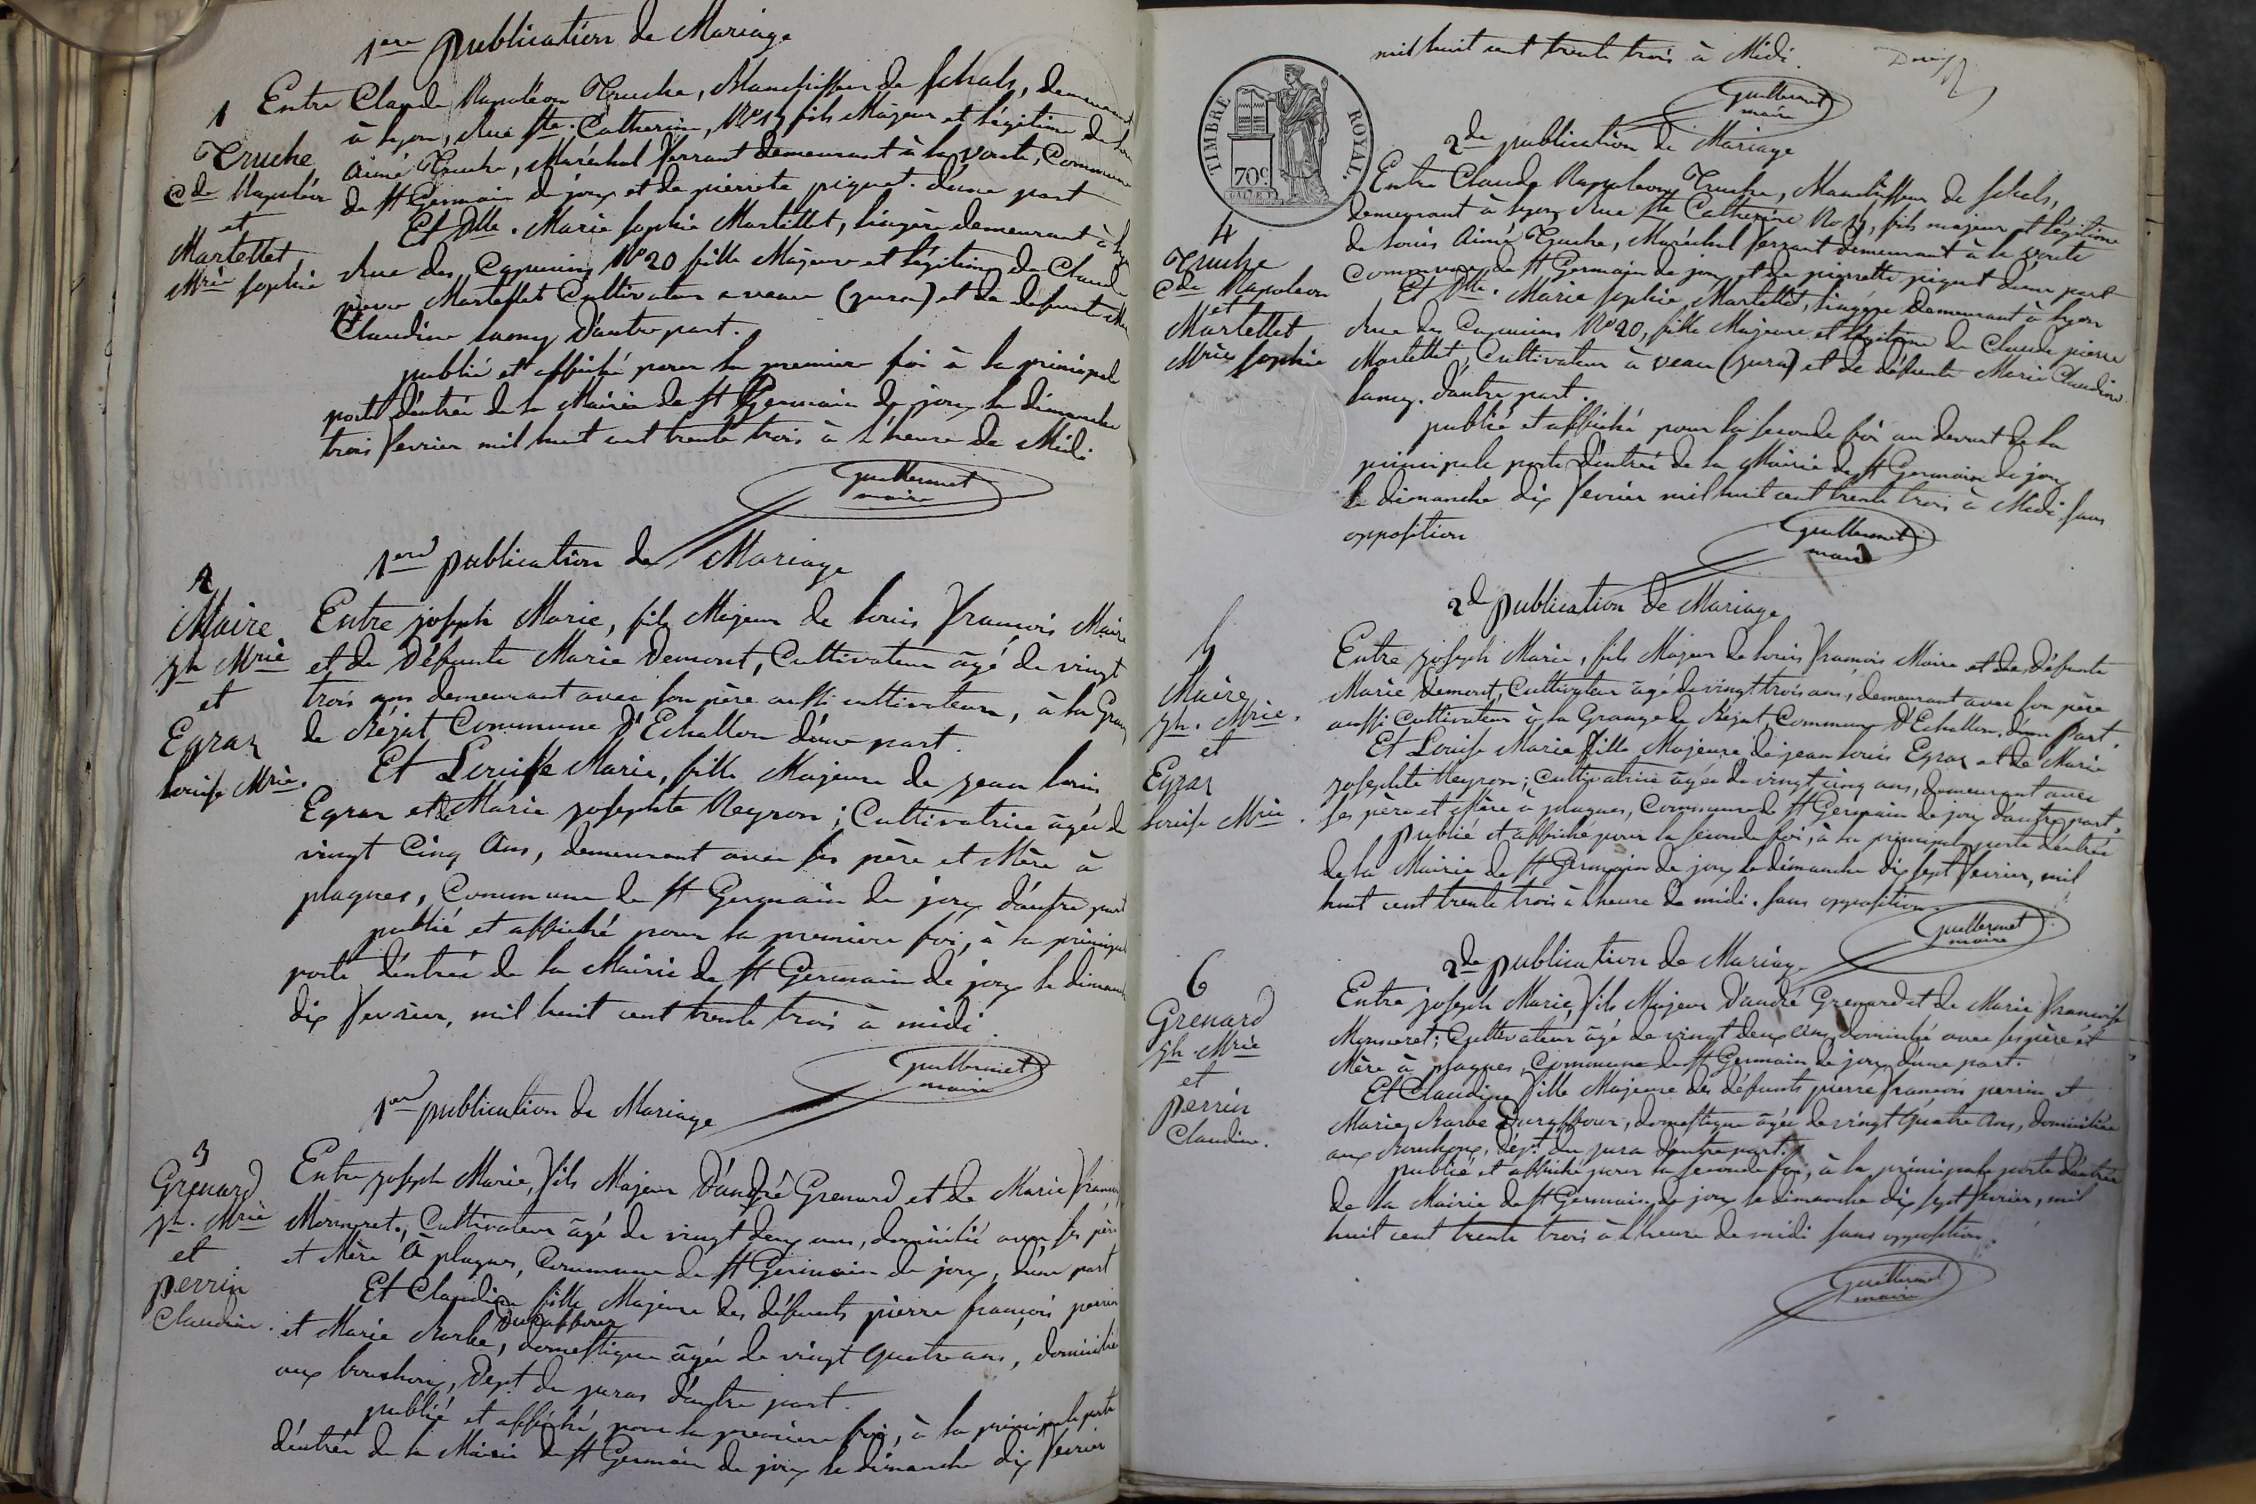 1ere publication de Mariage
1
Truche
Cde Napoléon
et
Martellet
Mrie Sophie
Entre Claude Napoléon Truche, Blanchisseur de Schals, demeurant
à Lyon, Rue Ste. Catherine, No 13 fils Majeur et Légitime de
Aimé Truche, Maréchal ferrant demeurant à la voute, Commune
de St Germain de joux et de pierrette piquet. d'une part
Et Dlle. Marie Sophie Martellet, lingère demeurant à Lyon
Rue des Capucins No 20 fille Majeure et Légitime de Claude
pierre Martellet Cultivateur a veau (jura) et de defunte
Claudine lamy d'autre part.
publié et affiché pour la premiere foi à la principal
porte d'entrée de la Mairie de St Germain de joux le dimanche
trois fevrier mil huit cent trente trois à l'heure de Midi
Guillermet
maire
1ere publication de Mariage
2
Maire
jh Mrie
et
Egraz
Louise Mrie.
Entre joseph Marie, fils Majeur de Louis François Maire
et de Défunte Marie Demont, Cultivateur âgé de vingt
trois ans demeurant avec son père aussi cultivateur, à la Grange
de Réjat Commune d'Echallon d'une part.
Et Louise Marie, fille Majeure de jean Louis
Egraz et de Marie josephte Neyron; Cultivatrice âgée de
vingt Cinq Ans, demeurant avec ses père et Mère à
plagnes, Commune de St Germain de joux d'autre part
publié et affiché pour la premiere foi, à la principal
porte d'entrée de la Mairie de St Germain de joux le dimanche
dix fevrier, mil huit cent trente trois à midi.
Guillermet
maire
1ere publication de Mariage
3
Grenard
jh. Mrie
et
perrin
Claudine.
Entre joseph Marie, fils Majeur d'andré Grenard et de Marie
Monneret; Cultivateur âgé de vingt deux ans, domicilié avec ses père
et Mère à plagnes, Commune de St Germain de joux, d'une part
Et Claudine fille Majeure des défunts pierre françois perrin
Duraffour
et Marie Barbe, domestique âgée de vingt quatre ans, domiciliée
aux bouchoux, Dept du juras d'autre part.
publié et affiché pour la premiere foi, à la principale porte
d'entrée de la Mairie de St Germain de joux le dimanche dix fevrier
mil huit cent trente trois à Midi.
Guillermet
maire
TIMBRE ROYAL.
70c
2de publication de Mariage
4
Truche
Cde Napoléon
et
Martellet
Mrie Sophie
Entre Claude Napoleon Truche, Blanchisseur de Schals,
demeurant à Lyon Rue Ste Catherine No 13, fils majeur et légitime
de Louis Aimé Truche, Maréchal ferrant demeurant à la voute
Commune de St Germain de joux et de pierrette piquet d'une part
Et Dlle. Marie Sophie Martellet, lingère Demeurant à Lyon
Rue des Capucins No 20, fille Majeure et Légitime de Claude pierre
Martellet, Cultivateur à veau (jura) et de défunte Marie Claudine
lamy. d'autre part.
publié et affiché pour la seconde foi au devant de la
principale porte d'entrée de la Mairie de St Germain de joux
le dimanche dix fevrier mil huit cent trente trois à Midi sans
opposition
Guillermet
maire
2de publication de Mariage
5
Maire
jh. Mrie.
et
Egraz
Louise Mrie.
Entre joseph Marie, fils Majeur de Louis François Maire et de Défunte
Marie Demont, Cultivateur âgé de vingt trois ans, demeurant avec son père
aussi Cultivateur à la Grange de Réjat, Commune d'Echallon, d'une part,
Et Louise Marie fille Majeure de jean Louis Egraz et de Marie
josephte Neyron; Cultivatrice âgée de vingt cinq ans, demeurant avec
ses père et Mère à plagnes, Commune de St Germain de joux d'autre part,
publié et affiché pour la seconde foi, à la principale porte d'entrée
de la Mairie de St Germain de joux le dimanche dix sept fevrier, mil
huit cent trente trois à l'heure de midi. sans opposition.
Guillermet
maire
2de publication de Mariage
6
Grenard
jh. Mrie
et
perrin
Claudine.
Entre joseph Marie, fils Majeur d'andré Grenard et de Marie Françoise
Monneret; Cultivateur âgé de vingt deux ans, domicilié avec ses père et
Mère à plagnes, Commune de St Germain de joux d'une part.
Et Claudine fille Majeure des défunts pierre françois perrin et
Marie Barbe Duraffour, domestique âgée de vingt quatre ans, domiciliée
aux Bouchoux, dépt du jura d'autre part.
publié et affiché pour la seconde foi, à la principale porte d'entrée
de la Mairie de St Germain de joux le dimanche dix sept fevrier, mil
huit cent trente trois à l'heure de midi sans opposition.
Guillermet
maire